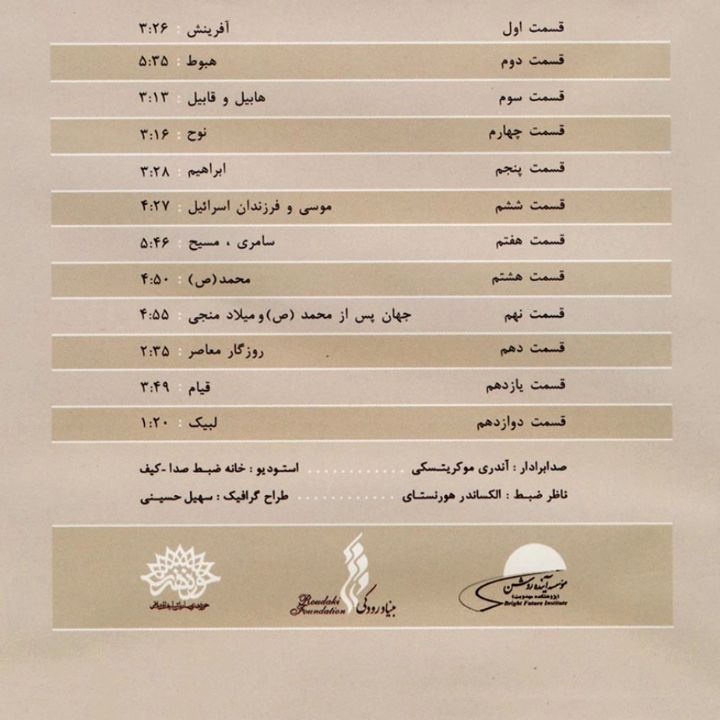 قسمت اول آفرینش : ۳:۲۶
قسمت دوم هبوط : ۵:۳۵
قسمت سوم هابیل و قابیل : ۳:۱۳
قسمت چهارم نوح : ۳:۱۶
قسمت پنجم ابراهیم : ۳:۲۸
قسمت ششم موسی و فرزندان اسرائیل : ۴:۲۷
قسمت هفتم سامری ، مسیح : ۵:۴۶
قسمت هشتم محمد(ص) : ۴:۵۰
قسمت نهم جهان پس از محمد (ص)و میلاد منجی : ۴:۵۵
قسمت دهم روزگار معاصر : ۲:۳۵
قسمت یازدهم قیام : ۳:۴۹
قسمت دوازدهم لبیک : ۱:۲۰
صدابرادار : آندری موکریتسکی ............ استودیو : خانه ضبط صدا -کیف
ناظر ضبط : الکساندر هورنستای ............ طراح گرافیک : سهیل حسینی
موسسه آینده روشن
(پژوهشکده مهدویت)
Bright Future Institute
بنیاد رودکی
Roudaki
Foundation
حوزه هنری